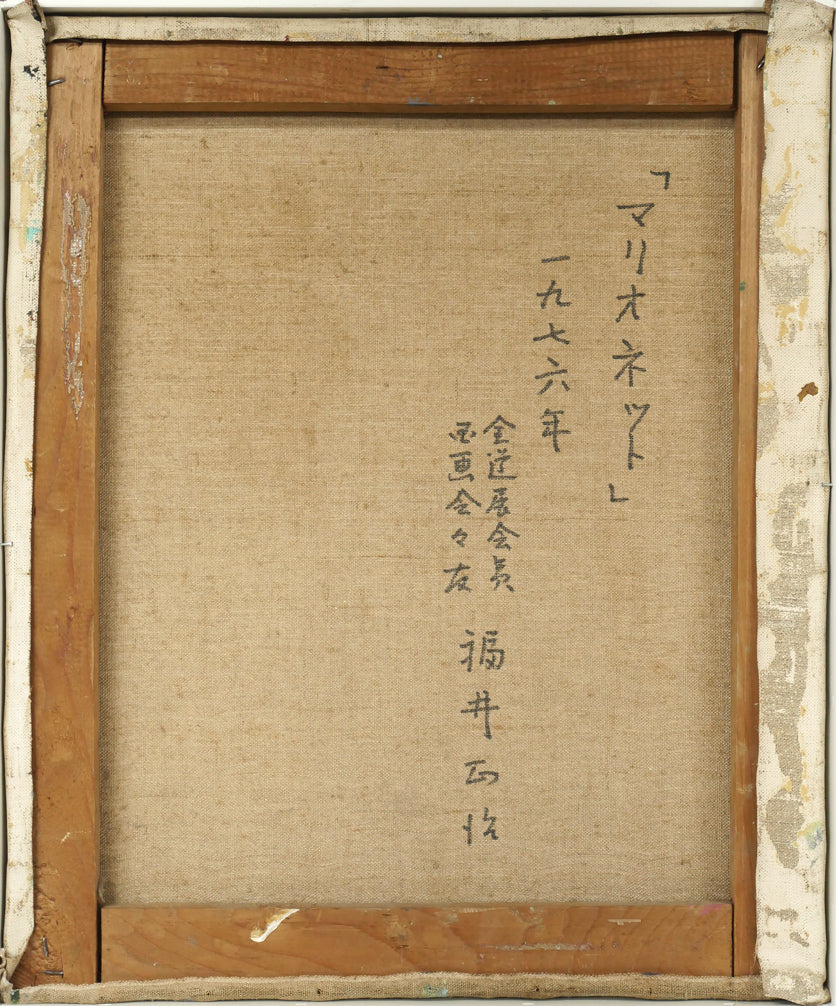 「マリオネット」
一九七六年
全道展会員
国画会々友
福井正治